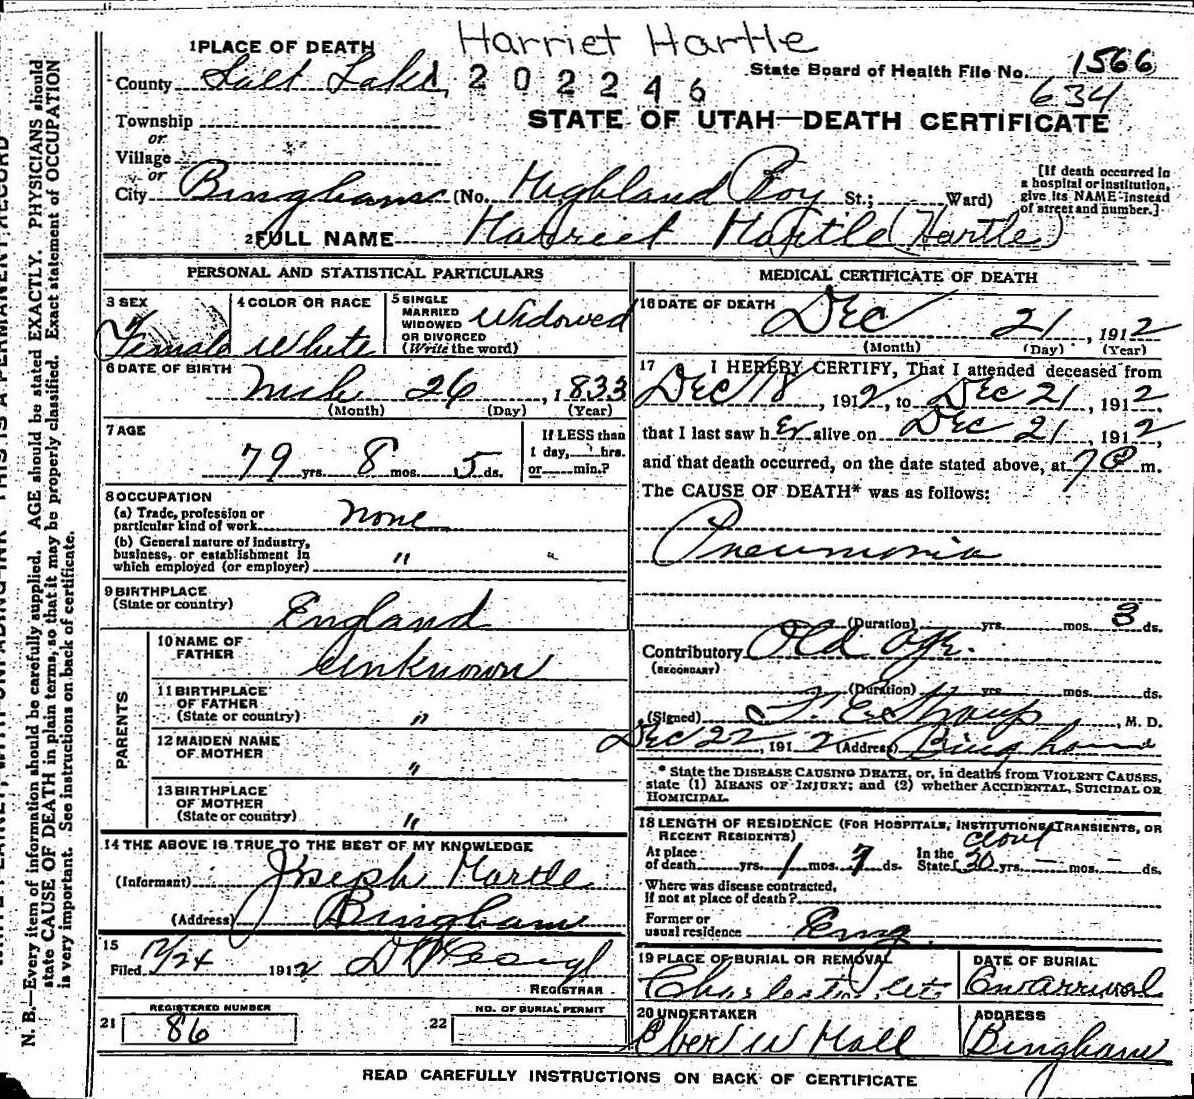 Harriet Hartle
1 PLACE OF DEATH
County Salt Lake 202246 State Board of Health File No. 1566
634
Township
or
STATE OF UTAH—DEATH CERTIFICATE
Village
or
City Bingham (No. Highland Boy St.; Ward)
[If death occurred in a hospital or institution, give its NAME instead of street and number.]
2 FULL NAME Harriet Hartle (Hartle)
PERSONAL AND STATISTICAL PARTICULARS
3 SEX Female
4 COLOR OR RACE White
5 SINGLE MARRIED WIDOWED OR DIVORCED (Write the word) Widowed
6 DATE OF BIRTH Mch 26, 1833
(Month) (Day) (Year)
7 AGE 79 yrs. 8 mos. 5 ds.
If LESS than 1 day, hrs. or min.?
8 OCCUPATION
(a) Trade, profession or particular kind of work None
(b) General nature of industry, business, or establishment in which employed (or employer) "  "
9 BIRTHPLACE
(State or country) England
PARENTS
10 NAME OF FATHER Unknown
11 BIRTHPLACE OF FATHER (State or country) "
12 MAIDEN NAME OF MOTHER "
13 BIRTHPLACE OF MOTHER (State or country) "
14 THE ABOVE IS TRUE TO THE BEST OF MY KNOWLEDGE
(Informant) Joseph Hartle
(Address) Bingham
15
Filed 12/24 1912
REGISTRAR
REGISTERED NUMBER
21 86
NO. OF BURIAL PERMIT
22
MEDICAL CERTIFICATE OF DEATH
16 DATE OF DEATH Dec 21, 1912
(Month) (Day) (Year)
17 I HEREBY CERTIFY, That I attended deceased from
Dec 18, 1912, to Dec 21, 1912,
that I last saw her alive on Dec 21, 1912,
and that death occurred, on the date stated above, at 7 P m.
The CAUSE OF DEATH* was as follows:
Pneumonia
(Duration) yrs. mos. 3 ds.
Contributory Old age.
(SECONDARY)
(Duration) yrs. mos. ds.
(Signed) F. E. Straup, M. D.
Dec 22, 1912 (Address) Bingham
* State the DISEASE CAUSING DEATH, or, in deaths from VIOLENT CAUSES, state (1) MEANS OF INJURY; and (2) whether ACCIDENTAL, SUICIDAL OR HOMICIDAL.
18 LENGTH OF RESIDENCE (FOR HOSPITALS, INSTITUTIONS, TRANSIENTS, OR RECENT RESIDENTS)
At place of death yrs. 1 mos. 7 ds. In the State about 30 yrs. mos. ds.
Where was disease contracted, if not at place of death?
Former or usual residence Eng.
19 PLACE OF BURIAL OR REMOVAL
DATE OF BURIAL
On arrival
20 UNDERTAKER
Eber W Hall
ADDRESS
Bingham
READ CAREFULLY INSTRUCTIONS ON BACK OF CERTIFICATE
N. B.—Every item of information should be carefully supplied. AGE should be stated EXACTLY. PHYSICIANS should
state CAUSE OF DEATH in plain terms, so that it may be properly classified. Exact statement of OCCUPATION
is very important. See instructions on back of certificate.